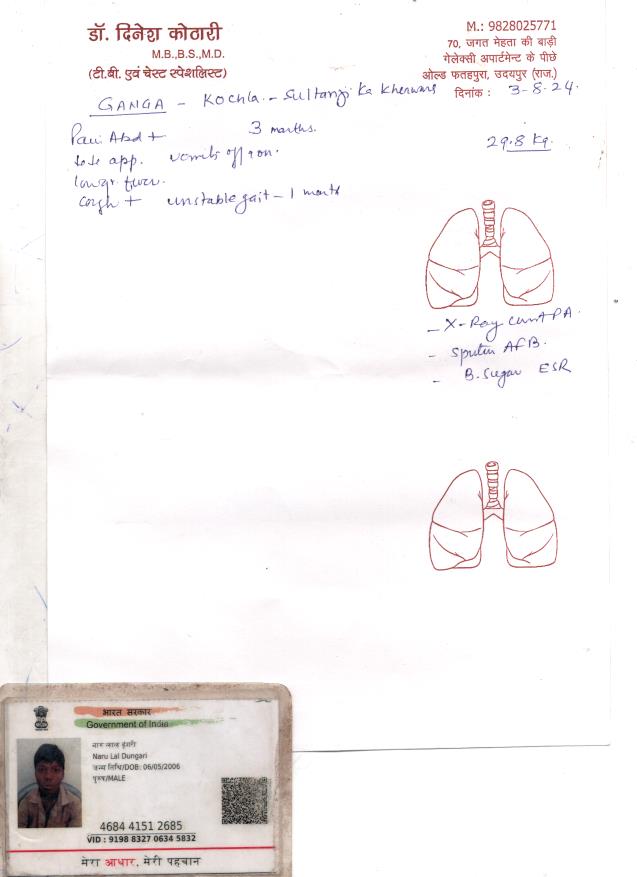 डॉ. दिनेश कोठारी
M.B.,B.S.,M.D.
(टी.बी. एवं चेस्ट स्पेशलिस्ट)
M.: 9828025771
70, जगत मेहता की बाड़ी
गेलेक्सी अपार्टमेन्ट के पीछे
ओल्ड फतहपुरा, उदयपुर (राज.)
दिनांक : 3-8-24.
GANGA - Kochla - Sultanji Ka Kherwara
Pain Abd + 3 months.
app. vomits off & on.
Cough + unstable gait - 1 month
29.8 Kg.
- X-Ray Chest PA.
- Sputum AFB.
- B. Sugar ESR
भारत सरकार
Government of India
नारु लाल डुंगरी
Naru Lal Dungari
जन्म तिथि/DOB: 06/05/2006
पुरुष/MALE
4684 4151 2685
VID : 9198 8327 0634 5832
मेरा आधार, मेरी पहचान